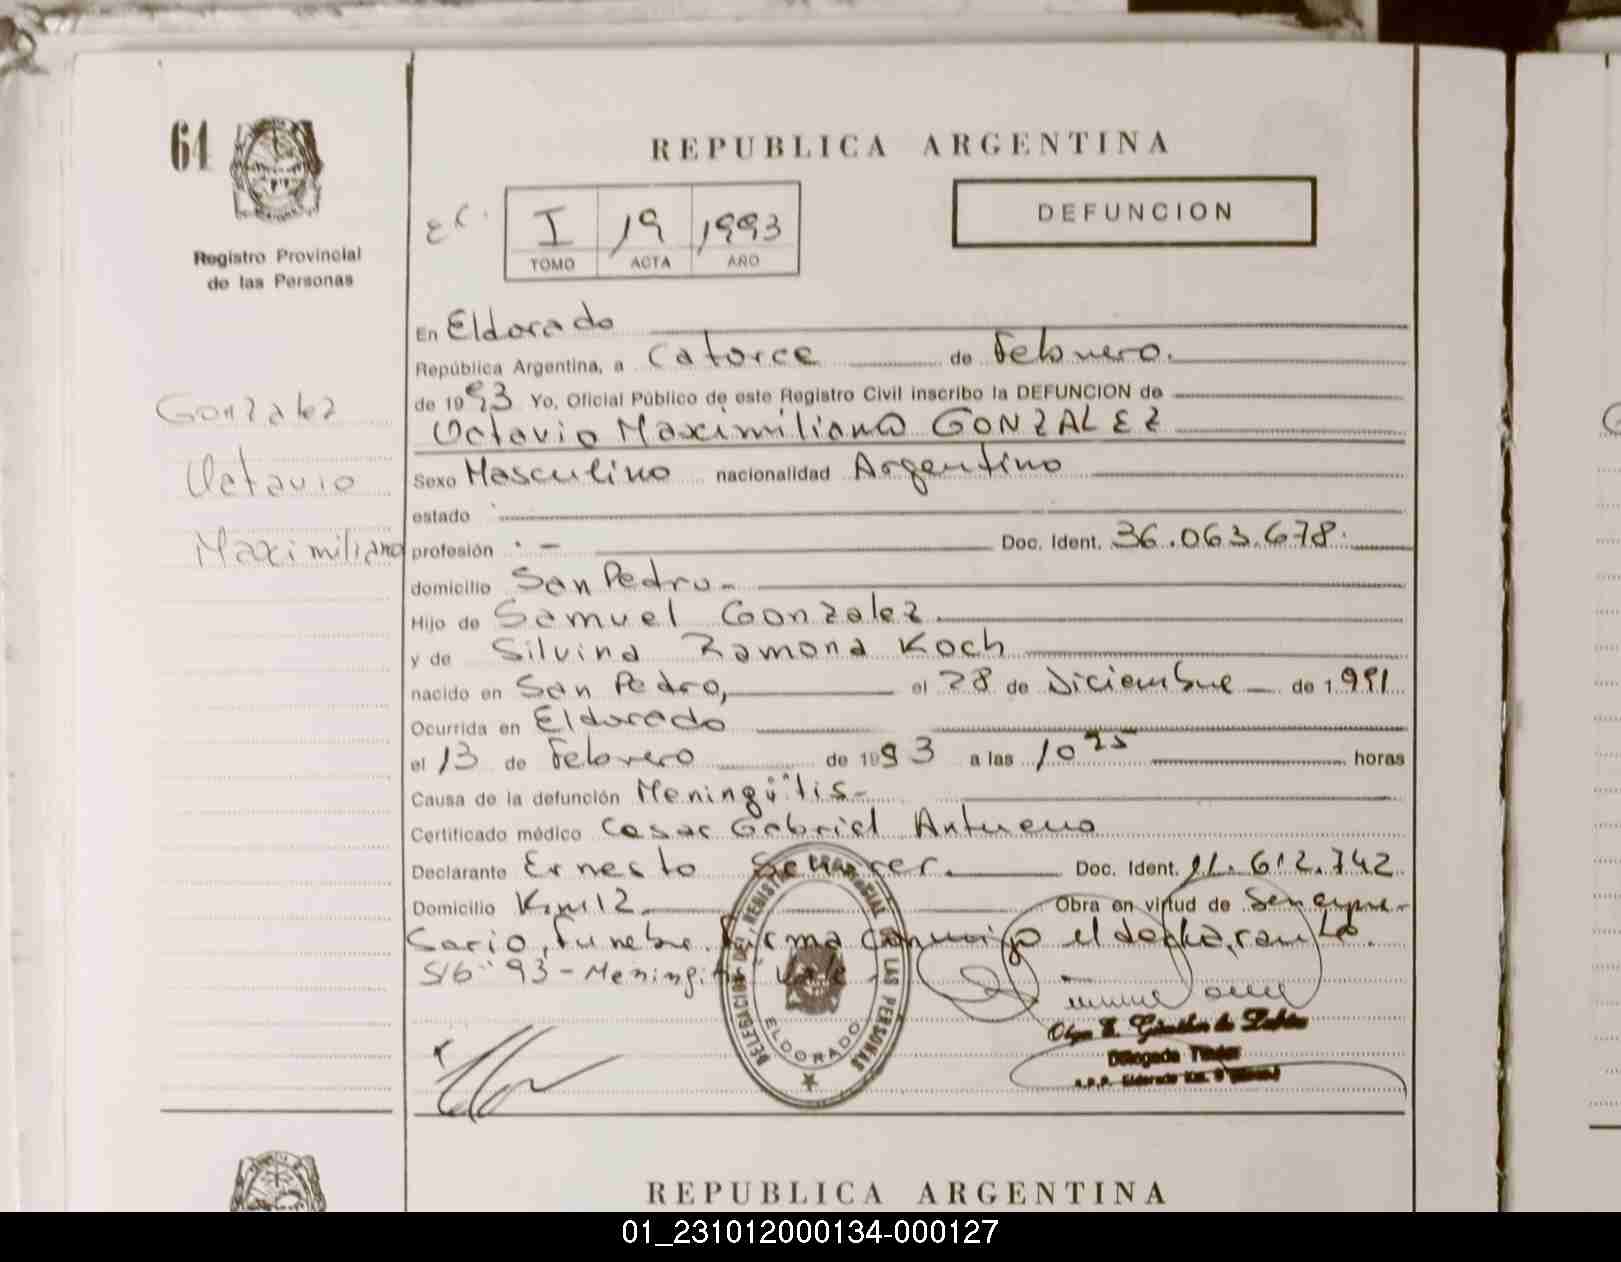 64
Registro Provincial
de las Personas
Gonzalez
Octavio
Maximiliano
REPUBLICA ARGENTINA
I 19 1993
TOMO ACTA AÑO
DEFUNCION
En Eldorado
República Argentina, a Catorce de Febrero.
de 1993 Yo, Oficial Público de este Registro Civil inscribo la DEFUNCION de
Octavio Maximiliano GONZALEZ
Sexo Masculino nacionalidad Argentino
estado
profesión - Doc. Ident. 36.063.678.
domicilio San Pedro-
Hijo de Samuel Gonzalez.
y de Silvina Ramona Koch
nacido en San Pedro, el 28 de Diciembre de 1.991
Ocurrida en Eldorado
el 13 de Febrero de 1993 a las 10 horas
Causa de la defunción
Certificado médico Cesar Gabriel
Declarante Ernesto Doc. Ident. 612.742
Domicilio Km 12 Obra en virtud de ser empre-
sario, funebre. Firma conmigo el
S/b "93-
DELEGACION DEL REGISTRO PROVINCIAL DE LAS PERSONAS
ELDORADO
Delegada Titular
REPUBLICA ARGENTINA
01_231012000134-000127